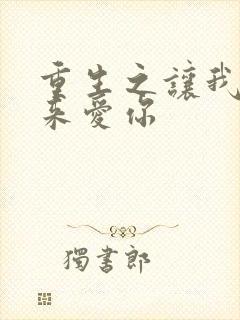 重生之讓我
来愛你
獨書郎